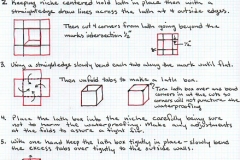 2. Keeping niche centered hold lath in place then with a
straightedge draw lines across the lath at 4 outside edges.
Then cut 4 corners from lath going beyond the
marks intersection 1/2"
1/2"
3. Using a straightedge slowly bend each tab along the mark until flat.
Then unfold tabs to make a lath box.
Tab corners over and bend
corners in at the cuts so
corners will not puncture the
waterproofing
4. Place the lath box into the niche, carefully being sure
not to puncture the waterproofing. Make any adjustments
at the folds to assure a tight fit.
5. With one hand keep the lath box tightly in place - slowly bend
the excess tabs over tightly to the outside walls.